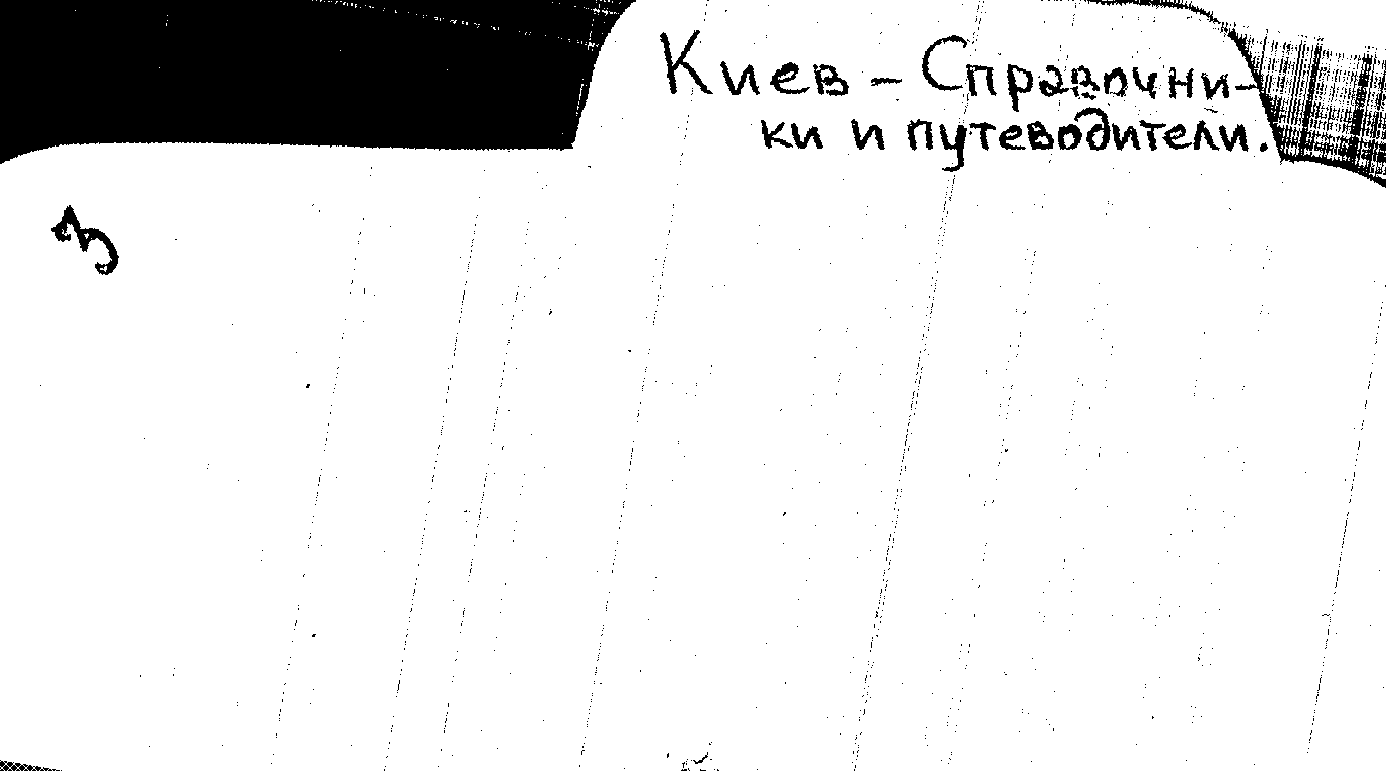 Киев – Справочни-
ки и путеводители.